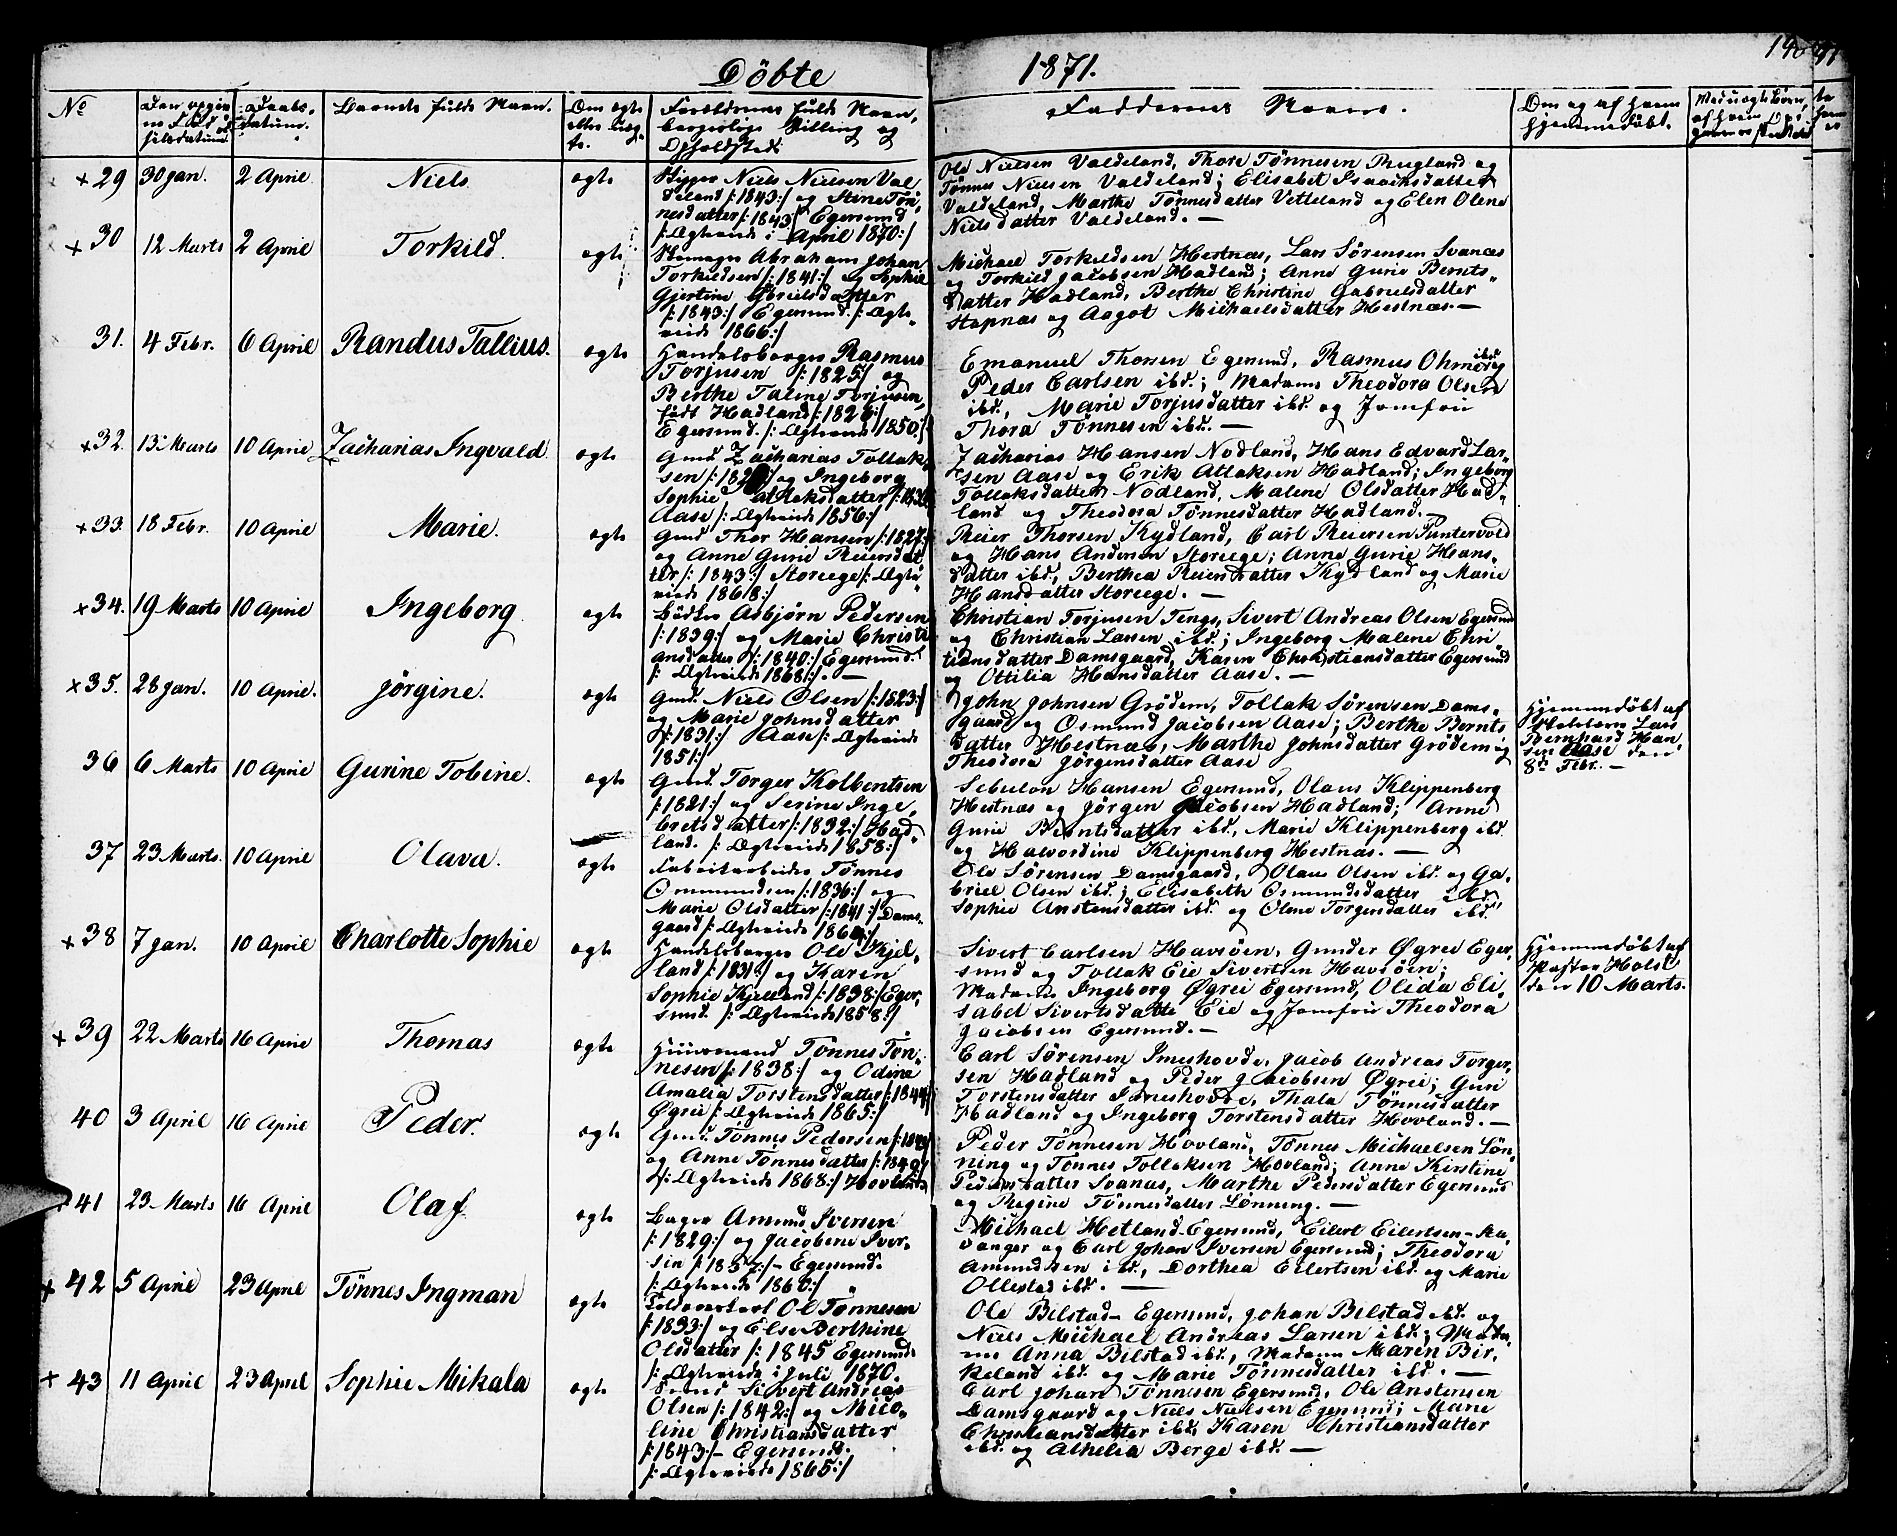 Döbte 1871.
No
Barnets fulde Navn.
Faddernes Navne.
Om og af hvem
hjemmedöbt.
29 30 Jan. 2 April Niels ægte
Niels Nielsen Val
deland /:1843:/ og Stine Tön-
nesdatter /:1843:/ Egersund
/:Ægteviede i April 1870:/
Ole Nielsen Valdeland, Thore Tönnesen Rugland og
Tönnes Nielsen Valdeland; Elisabet Isaachsdatter
Valdeland, Marthe Tönnesdatter Vetteland og Elen Olene
Nielsdatter Valdeland. —
30 12 Marts 2 April Torkild. ægte
Skomager Abraham Johan
Torkildsen /:1841:/ og Sophie
Gjertine Gabrielsdatter
/:1843:/ Egersund. /:Ægte-
viede 1866:/
Michael Torkildsen Hestnæs, Lars Sörensen Svanæs
og Torkild Jacobsen Hadland; Anne Gurie Bernts-
datter Hadland, Berthe Christine Gabrielsdatter
Stapnæs og Aagot Michaelsdatter Hestnæs. —
31. 4 Febr. 6 April Randus Tallius. ægte
Handelsborger Rasmus
Torjusen /:1825:/ og
Berthe Talene Torjusen,
födt Hadland /:1826:/
Egersund. /:Ægteviede 1850:/
Emanuel Thorsen Egersund, Rasmus Ohmöy ibd.
Peder Carlsen ibd.; Madame Theodora Olsen
ibd., Marie Torjusdatter ibd. og Jomfru
Thora Tönnesen ibd. —
32. 13. Marts 10 April Zacharias Ingvald ægte
Gmd. Zacharias Tollak-
sen og Ingeborg
Sophie Atlaksdatter
Aase /:Ægteviede 1856:/
Zacharias Hansen Nodland, Hans Edvard Lar-
sen Aase og Erik Atlaksen Hadland; Ingeborg
Tollaksdatter Nodland, Malene Olsdatter Had-
land og Theodora Tönnesdatter Hadland. —
33. 18 Febr. 10 April Marie. ægte
Gmd. Thor Hansen /:1827:/
og Anne Gurie Reiersdat-
ter /:1843:/ Storeege /:Ægte-
viede 1868:/
Reier Thorsen Kydland, Carl Reiersen Puntervold
og Hans Andersen Storeege; Anne Gurie Hans-
datter ibd., Berthea Reiersdatter Kydland og Marie
Hansdatter Storeege. —
34. 19 Marts 10 April Ingeborg. ægte
Bödker Asbjörn Pedersen
/:1839:/ og Marie Christi-
ansdatter /:1840:/ Egersund.
/: Ægteviede 1868:/. —
Christian Torjusen Tengs, Sivert Andreas Olsen Egersund
og Christian Larsen ibd.; Ingeborg Malene Chri
tiansdatter Damsgaard, Karen Christiansdatter Egersund
og Ottilia Hansdatter Aase. —
35. 28 Jan. 10 April. Jörgine. ægte
Gmd. Niels Olsen /:1823:/
og Marie Johnsdatter
/:1831:/ Aase /:Ægteviede
1851:/
John Johnsen Grödem, Tollak Sörensen Dams-
gaard og Osmund Jacobsen Aase; Berthe Bernts-
datter Hestnæs, Marthe Johnsdatter Grödem og
Theodora Jörgensdatter Aase
Hjemmedöbt af
Lars
Bernhard Han
sen Aase den
8de Febr. —
36 6 Marts 10 April Gurine Tobine. ægte
Gmd. Torger Kolbentsen
/:1821:/ og Serine Inge-
bretsdatter /:1832:/ Had-
land. /:Ægteviede 1858:/
Sebulon Hansen Egersund, Olaus Klippenberg
Hestnæs og Jörgen Jacobsen Hadland; Anne
Gurie Berntsdatter ibd., Marie Klippenberg ibd.
og Halvordine Klippenberg Hestnæs. —
37 23 Marts. 10 April Olava. ægte
Tönnes
Ommundsen /:1836:/ og
Marie Olsdatter /:1841:/ Dams-
gaard /:Ægteviede 1864:/
Ole Sörensen Damsgaard, Olaus Olsen ibd. og Ga-
briel Olsen ibd.; Elisabeth Osmundsdatter ibd.,
Sophie Anstensdatter ibd. og Olene Torgersdatter ibd.
38 7 Jan. 10 April Charlotte Sophie ægte
Handelsborger Ole Kjel-
land /:1831:/ og Karen
Sophie Kjelland /:1838:/ Eger-
sund. /:Ægteviede 1858:/
Sivert Carlsen Havsöen, Gunder Øgrei Eger-
sund og Tollak Eie Sivertsen Havsöen;
Madame Ingeborg Øgrei Egersund, Olida Eli-
sabet Sivertsdatte Eie og Jomfru Theodora
Jacobsen Egersund. —
Hjemmedöbt af
Pastor Holst
den 10 Marts.
39 22 Marts 16 April Thomas ægte
Huusmand Tönnes Tön-
nesen /:1838:/ og Odine
Amalia Torstensdatter /:1844:/
Øgrei /:Ægteviede 1865:/
Carl Sörensen Imeshovde, Jacob Andreas Torger-
sen Hadland og Peder Jacobsen Øgrei; Guri
Torstensdatter Imeshovde, Thala Tönnesdatter
Hadland og Ingeborg Torstensdatter Hovland. —
40 3 April 16 April Peder. ægte
Gmd. Tönnes Pedersen
og Anne Tönnesdatter /:1849:/
/:Ægteviede 1868:/ Hovland
Peder Tönnesen Hovland, Tönnes Michaelsen Lön-
ning og Tönnes Tollaksen Hovland; Anne Kirstine
Pedersdatter Svanæs, Marthe Pedersdatter Egersund
og Regine Tönnesdatter Lönning. —
41 23 Marts 16 April Olaf. ægte
Bager Amund Iversen
/:1829:/ og Jacobene Iver-
sen /:1837:/ - Egersund.
/:Ægteviede 1860:/
Michael Hetland Egersund, Eilert Eilertsen - Sta-
vanger og Carl Johan Iversen Egersund; Theodora
Amundsen ibd., Dorthea Eilertsen ibd. og Marie
Ollestad ibd. —
42 5 April 23 April Tönnes Ingman ægte
Ole Tönnesen
/:1833:/ og Else Berthine
Olsdatter /:1845 Egersund
/:Ægteviede i Juli 1870.
Ole Bilstad - Egersund, Johan Bilstad ibd. og
Niels Michael Andreas Larsen ibd.; Mada-
me Anna Bilstad ibd., Madame Maren Bir-
keland ibd. og Marie Tönnesdatter ibd. —
43 11 April 23 April Sophie Mikala ægte
Sivert Andreas
Olsen /:1842:/ og Mico-
line Christiansdatter
/:1843:/ - Egersund.
/:Ægteviede 1865:/
Carl Johan Tönnesen Egersund, Ole Anstensen
Damsgaard og Niels Nielsen Egersund; Marie
Christiansdatter ibd., Karen Christiansdatter
ibd. og Athelia Berge ibd. —